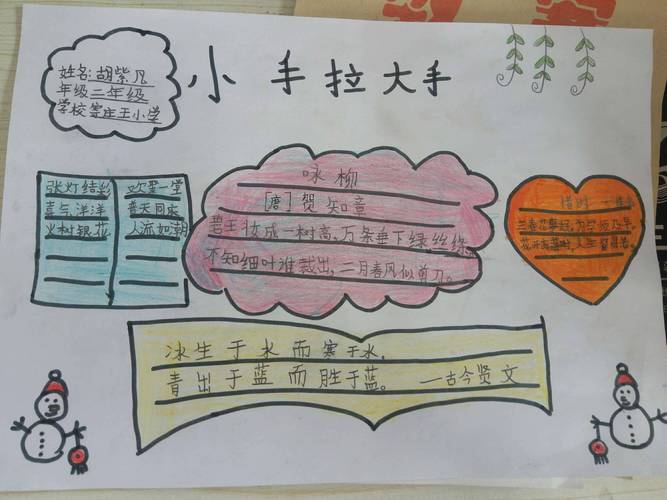 小手拉大手
姓名:胡紫凡
年级二年级
学校窑庄王小学
张灯结彩
喜气洋洋
火树银花
欢聚一堂
普天同庆
人流如潮
咏柳
[唐]贺知章
碧玉妆成一树高,万条垂下绿丝绦。
不知细叶谁裁出,二月春风似剪刀。
惜时
冰生于水而寒于水,
青出于蓝而胜于蓝。 —古今贤文